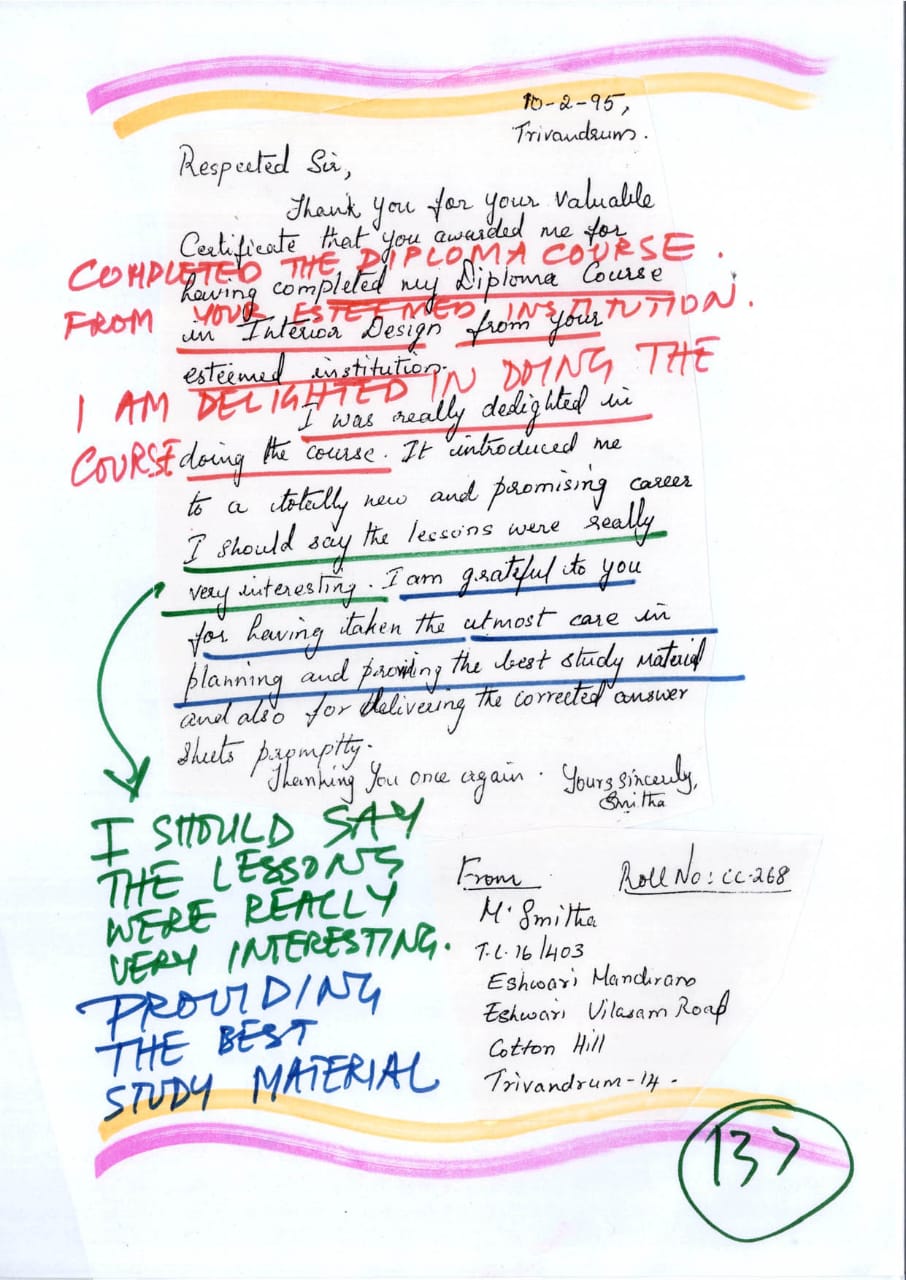 10-2-95,
Trivandrum.
Respected Sir,
Thank you for your valuable
Certificate that you awarded me for
COMPLETED THE DIPLOMA COURSE.
having completed my Diploma Course
FROM YOUR ESTEEMED INSTITUTION.
in Interior Design from your
esteemed institution.
I AM DELIGHTED IN DOING THE
I was really dedighted in
COURSE
doing the course. It introduced me
to a totally new and promising career
I should say the lessons were really
very interesting. I am grateful to you
for having taken the utmost care in
planning and proviing the best study material
and also for delivering the corrected answer
sheets promptly.
Thanking You once again. Yours sincerely,
Smitha
I SHOULD SAY
THE LESSONS
WERE REALLY
VERY INTERESTING.
PROVIDING
THE BEST
STUDY MATERIAL
From Roll No: CC-268
M. Smitha
T.C. 16/403
Eshwari Mandiram
Eshwari Vilasam Road
Cotton Hill
Trivandrum-14.
137